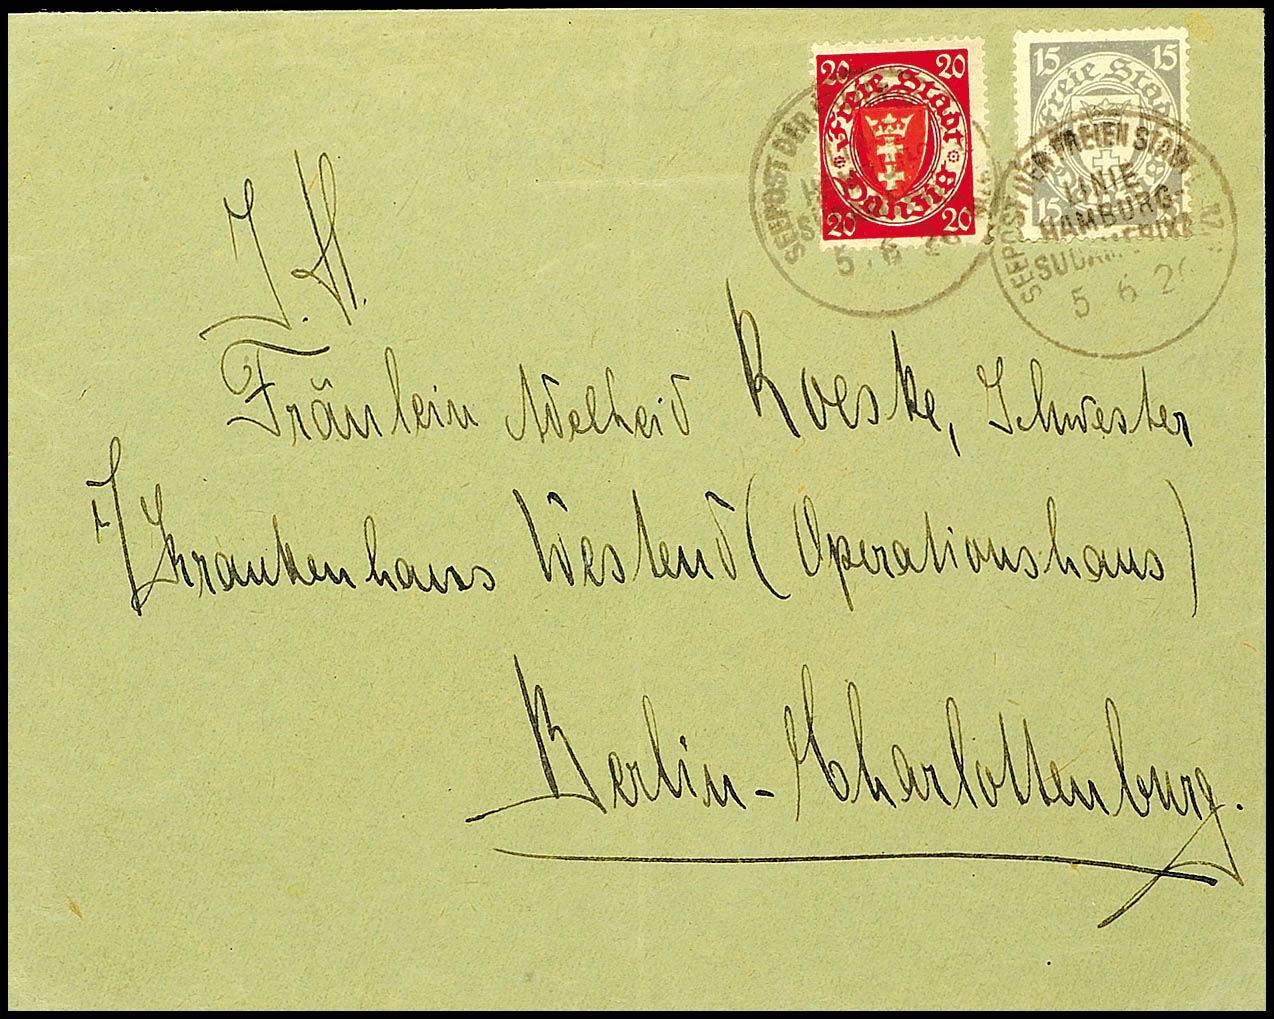 20 20
Freie Stadt
Danzig
20 20
15 15
Freie Stadt
15 15
SEEPOST DER
5. 6. 2
SEEPOST DER FREIEN STADT
LINIE
HAMBURG-
SÜDAMERIKA
5 6 2
I. H.
Fräulein Adelheid Roeske, Schwester
Krankenhaus Westend (Operationshaus)
Berlin-Charlottenburg.